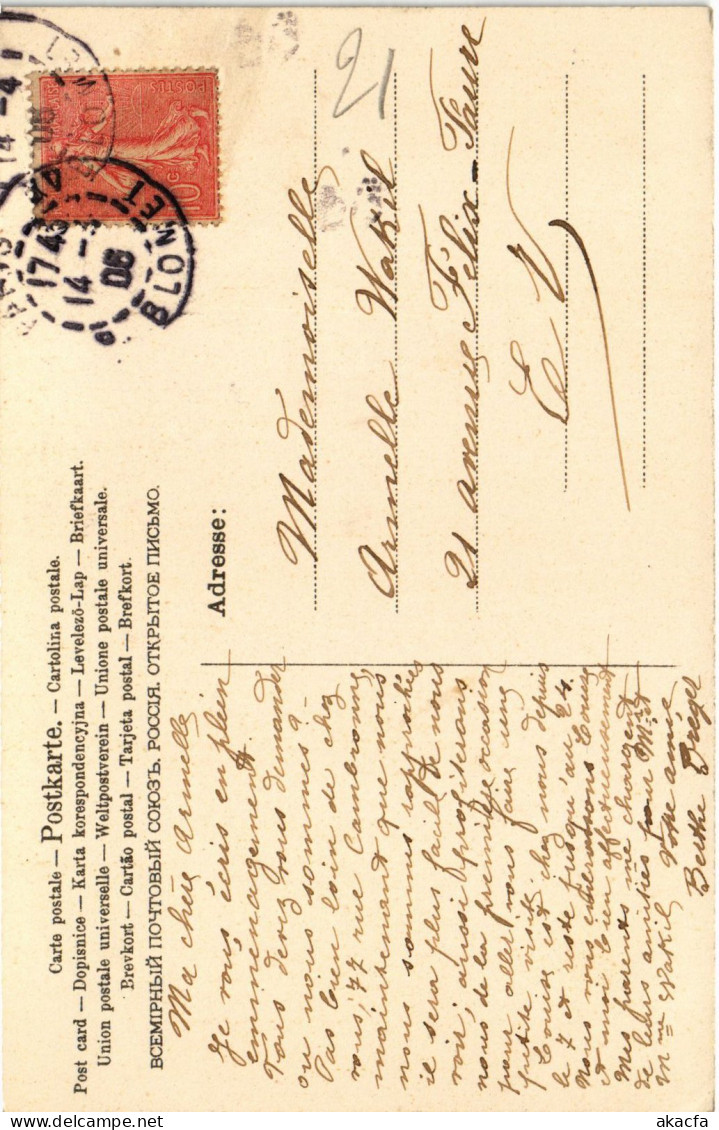 Carte postale — Postkarte. — Cartolina postale.
Post card — Dopisnice — Karta korespondencyjna — Levelező-Lap — Briefkaart.
Union postale universelle — Weltpostverein — Unione postale universale.
Brevkort — Cartão postal — Tarjeta postal — Brefkort.
ВСЕМІРНЫЙ ПОЧТОВЫЙ СОЮЗЪ. РОССІЯ. ОТКРЫТОЕ ПИСЬМО.
Ma chère Armelle
Je vous écris en plein
emménagement
Vous devez vous demander
ou nous sommes ? -
Pas bien loin de chez
vous, 77 rue Cambronne,
maintenant que nous
nous sommes rapprochées
il sera plus facile de nous
voir, aussi profiterons
nous de la première occasion
pour aller vous faire une
petite visite
Louise est chez nous depuis
le 7 et reste jusqu'au 24.
Nous vous embrassons Louise
et moi bien affectueusement
Mes parents me chargent
de leurs amitiés pour Mr et
Mme Wakil Votre amie
Berthe Dreger
Adresse:
Mademoiselle
Armelle Wakil
21 avenue Félix-Faure
E V
21
POSTES
10 c
17 45
14 -
06
BLOMET
14 -4
06
BLOMET
akacfa